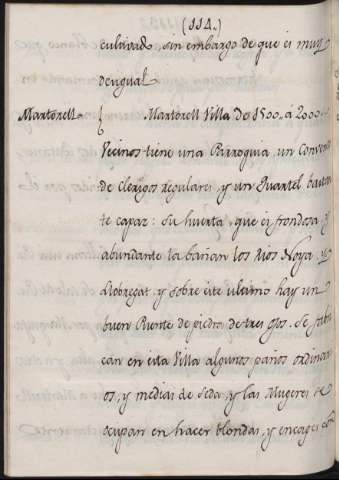 (114.)
cultivado sin embargo de que es muy
desigual
Martorell { Martorell Villa de 1500 á 2000
Vecinos tiene una Parroquia, un Convento
de Clerigos regulares y un Quartel bastan
te capaz: Su huerta, que es frondosa y
abundante la bañan los Rios Noya, y
Llobregat y sobre este ultimo hay un
buen Puente de piedra de tres ojos. Se fabri
can en esta Villa algunos paños ordinari
os, y medias de Seda, y las Mugeres se
ocupan en hacer blondas, y encages